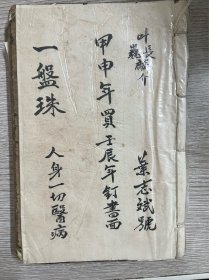 叶長介
巍
葉志斌號
甲申年買壬辰年釘書面
一盤珠
人身一切醫病